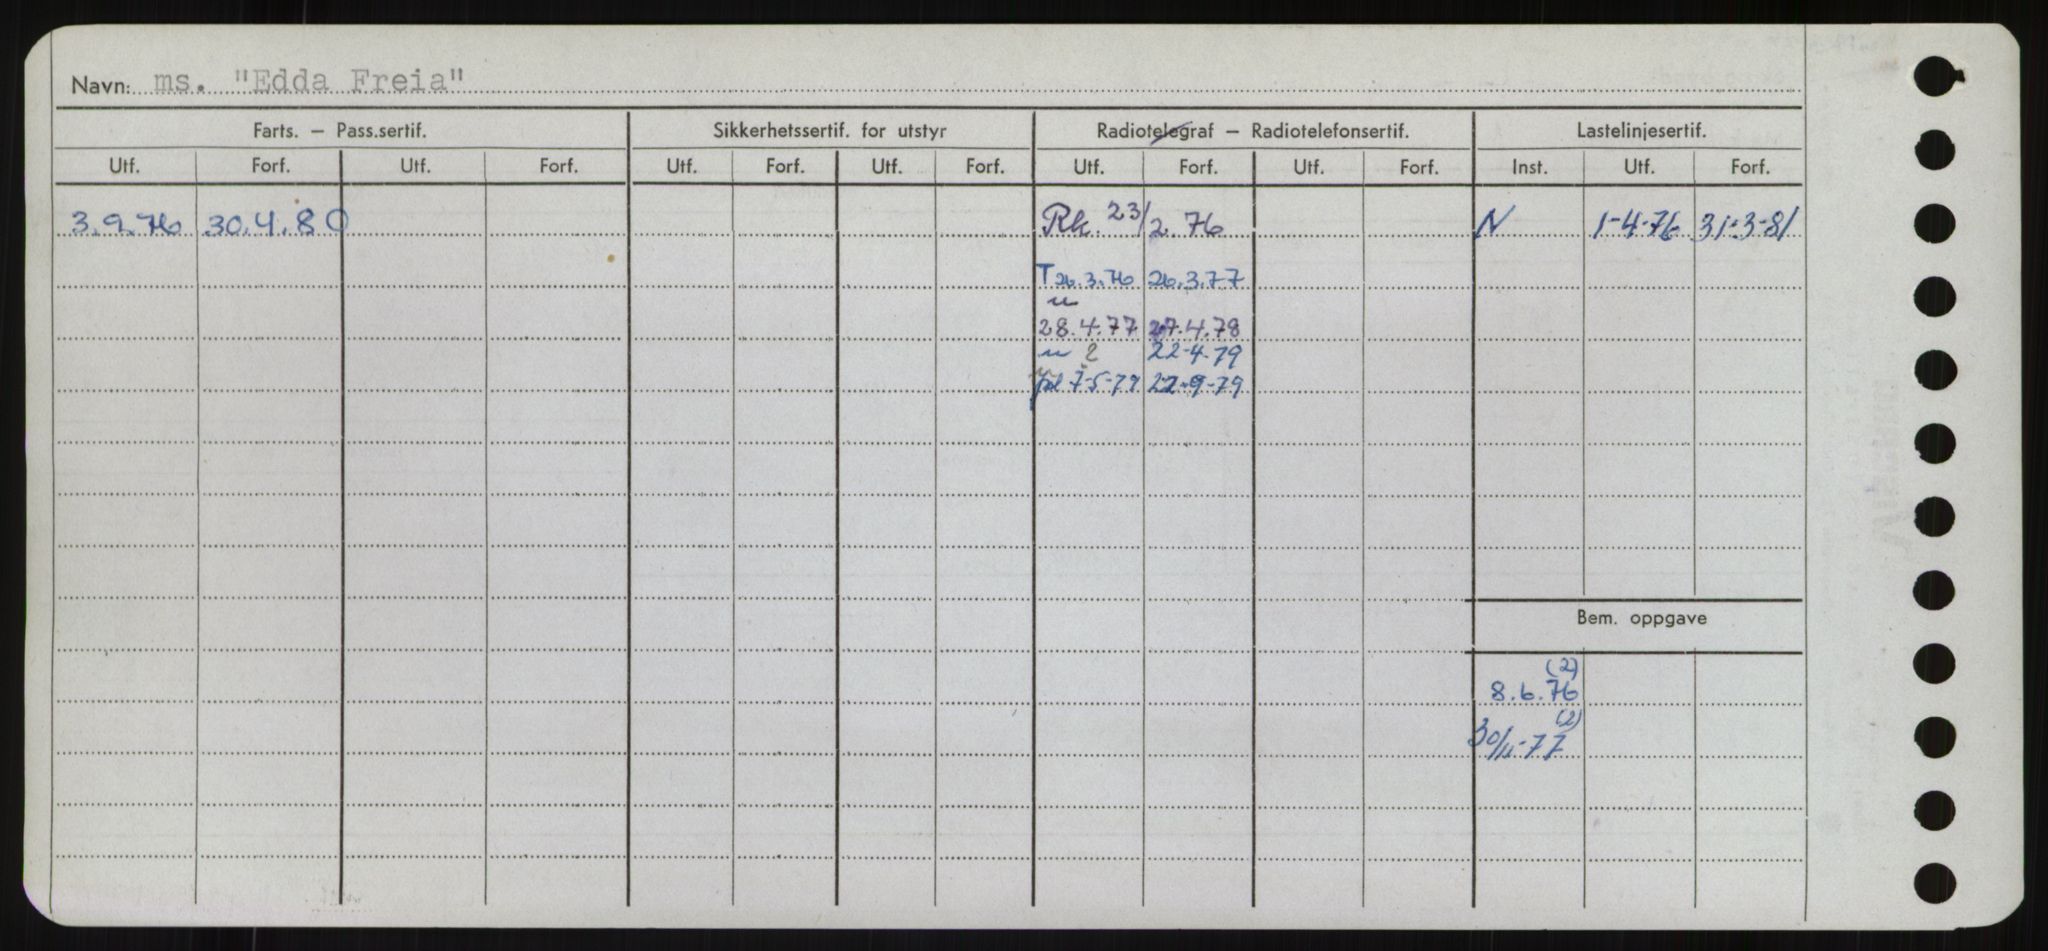 Navn: ms. "Edda Freia"
Farts. — Pass.sertif. Sikkerhetssertif. for utstyr Radiotelegraf — Radiotelefonsertif. Lastelinjesertif.
Utf. Forf. Utf. Forf. Utf. Forf. Utf. Forf. Utf. Forf. Utf. Forf. Inst. Utf. Forf.
3.9.76 30.4.80 Rk. 23/2.76 N 1-4-76 31-3-81
T 26.3.76 26.3.77
28.4.77 27.4.78
? 22-4-79
7-5-79 22-9-79
Bem. oppgave
(2)
8.6.76
(2)
30/11-77